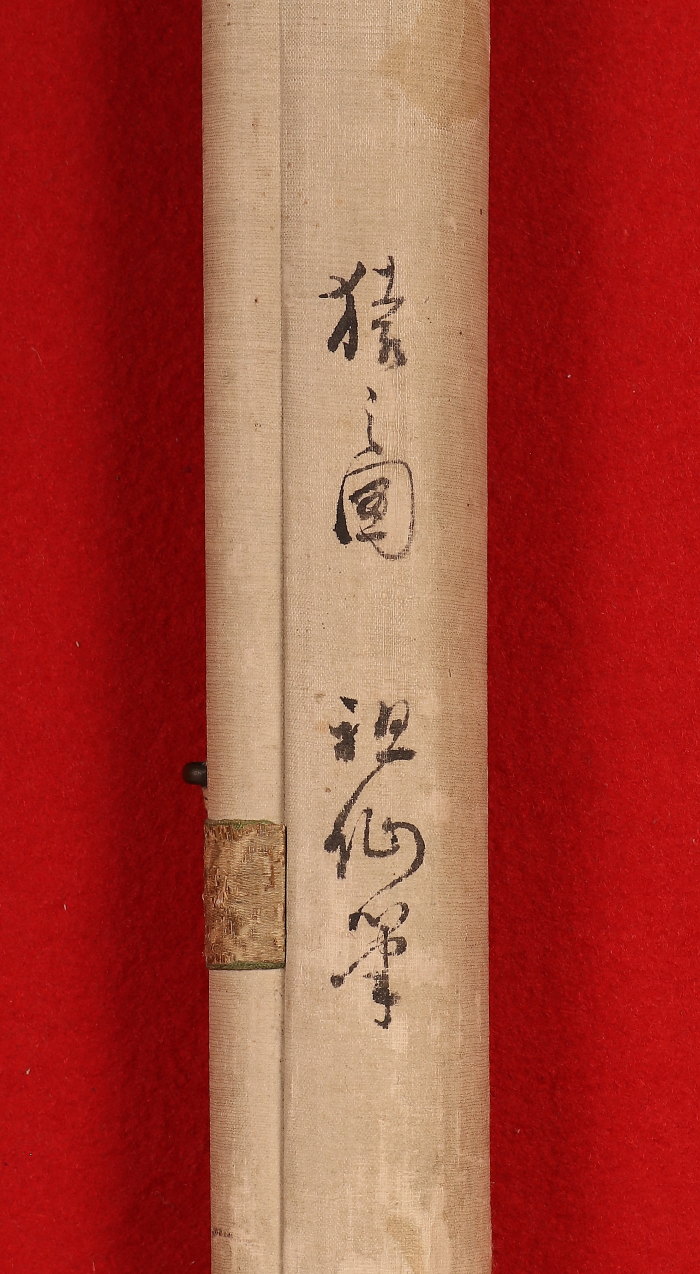 猿之圖 祖仙筆